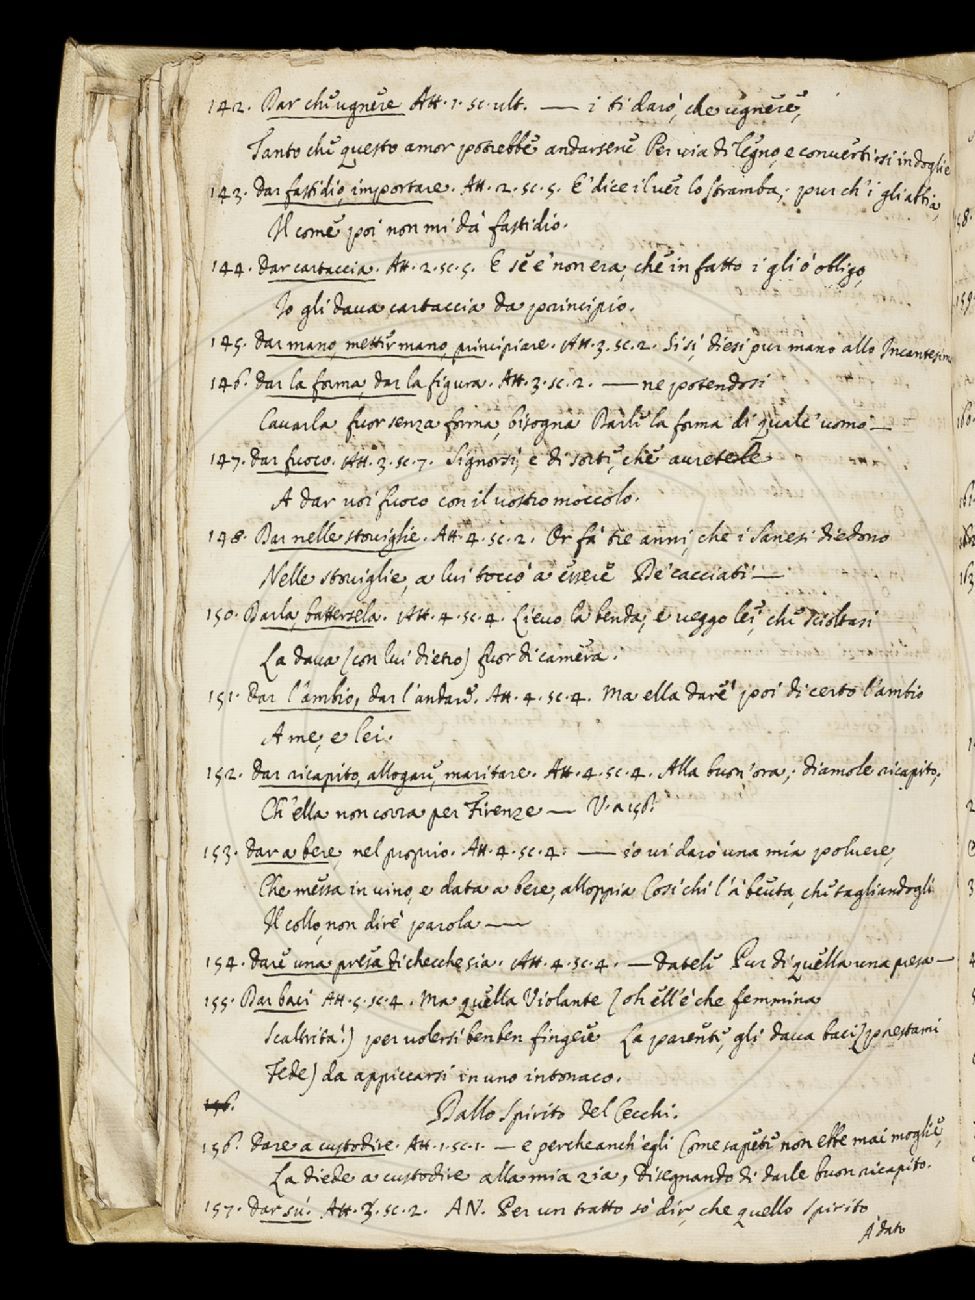 142. Dar che ugnere Att. 1. sc. ult. — i ti darò, che ugnere,
Tanto che questo amor potrebbe andarsene Per via di legno, e convertirsi in doglie
143. Dar fastidio, importare. Att. 2. sc. 5. E' dice il ver lo stramba; pur ch'i gli abbia,
Il come poi non mi dà fastidio.
144. Dar cartaccia. Att. 2. sc. 5. E se e' non era, che in fatto i gli ò obligo,
Io gli dava cartaccia da principio.
145. Dar mano, metter mano, principiare. Att. 3. sc. 2. Sì sì, diesi pur mano allo Incantesimo
146. Dar la forma, dar la figura. Att. 3. sc. 2. — ne potendosi
Cavarla fuor senza forma, bisogna Darle la forma di qualc' uomo —
147. Dar fuoco. Att. 3. sc. 7. Signorsì, e di sorte, che avretele
A dar voi fuoco con il vostro moccolo.
148. Dar nelle stoviglie. Att. 4. sc. 2. Or fà tre anni, che i Sanesi diedono
Nelle stoviglie, a lui toccò a essere De' cacciati —
150. Darla, battersela. Att. 4. sc. 4. Lievo la benda, e veggo lei, che scioltasi
La dava (con lui dietro) fuor di camera.
151. Dar l'ambio, dar l'andare. Att. 4. sc. 4. Ma ella darè poi di certo l'ambio
A me, e lei.
152. Dar ricapito, allogare, maritare. Att. 4. sc. 4. Alla buon'ora; diamole ricapito,
Ch'ella non corra per Firenze — V. a 156.
153. Dar a bere, nel proprio. Att. 4. sc. 4. — io vi darò una mia polvere,
Che messa in vino, e data a bere, alloppia Così chi l'à beuta, che tagliandogli
Il collo, non dire' parola —
154. Dare una presa di checchesia. Att. 4. sc. 4. — datele Pur di quella una presa —
155. Dar baci Att. 5. sc. 4. Ma quella Violante (oh ell'è che femmina
Scaltrita!) per volersi ben ben fingere La parente, gli dava baci (prestami
Fede) da appiccarsi in uno intonaco.
156.
Dallo Spirito del Cecchi.
156. Dare a custodire. Att. 1. sc. 1. — e perche anch'egli Come sapete non ebbe mai moglie,
La diede a custodire alla mia zia, disegnando di darle buon ricapito.
157. Dar sù. Att. 3. sc. 2. AN. Per un tratto sò dir, che quello Spirito
A' dato